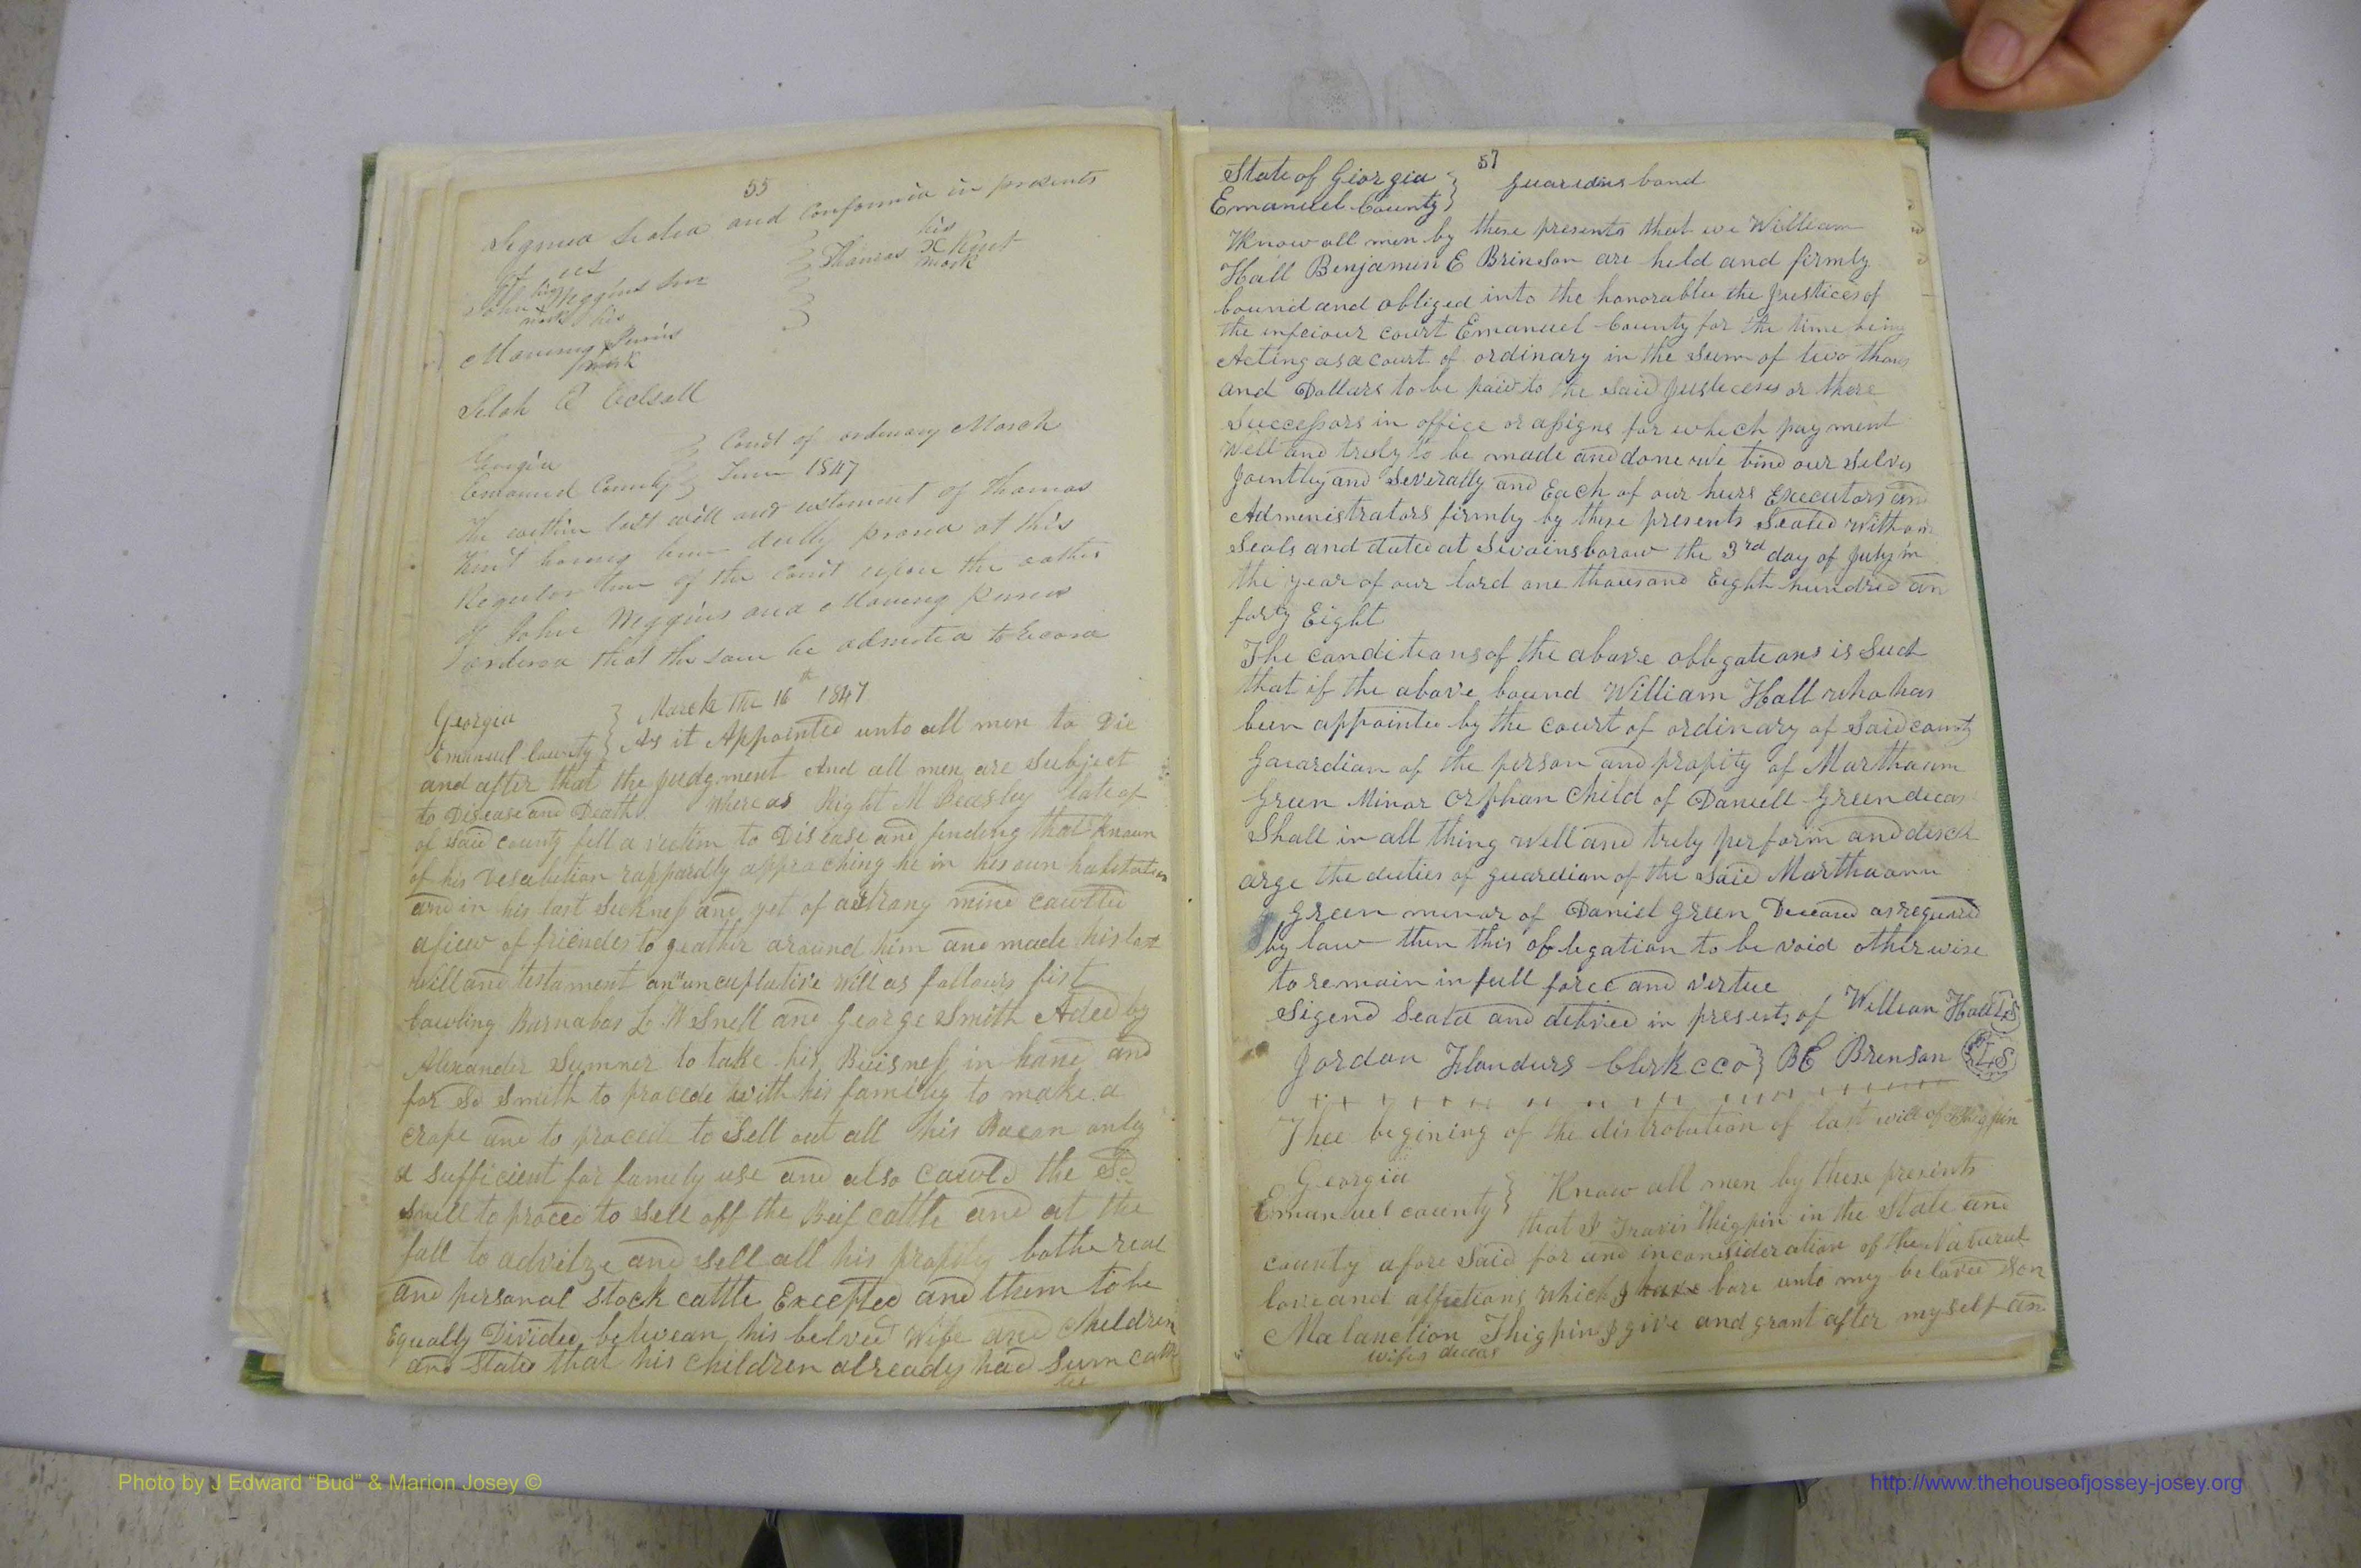 55
Signed Sealed and Conformed in presents
of us
his
Thomas X Kent
mark
John his Wiggins Snr
mark
his
Maning X Purvis
mark
Selah
Georgia } Court of ordinary March
Emanuel County } Term 1847
The within last will and testament of Thomas
Kent having been dully proved at this
Regular term of the Court before the oathes
of John Wiggins and Maning Purvis
ordered that the same be admited to Record
March the 16th 1847
Georgia
Emanuel County } As it Appointed unto all men to Die
and after that the judgment And all men are subject
to Disease and Death. Whereas Right M Beasley late of
of said county fell a victim to Disease and finding that known
of his Desolution rappardly approching he in his own habitation
and in his last Sickness and yet of a strong mind cawlled
a fiew of friendes to geather around him and made his last
will and testament an nuncuplative will as follows fist
Cawling Barnabas L W Snell and George Smith Aded by
Alexander Sumner to take his Buisness in hand and
for Sd Smith to procede with his family to make a
crope and to procede to Sell out all his Bacon only
a sufficient for family use and also cawld the Sd
Snell to proced to sell off the Beif cattle and at the
fall to advitze and sell all his propity bothe real
and personal stock cattle Excepted and them to be
Equally Divided betwean his belved Wife and children
and states that his children already had sum catt
tle
57
State of Georgia } guardins bond
Emanuel County }
Know all men by these presents that we William
Hall Benjamin E Brinson are held and firmly
bound and obliged into the honorablee the justices of
the inferiour court Emanuel County for the time being
Acting as a court of ordinary in the sum of two thous
and Dollars to be paid to the said justeceses or there
Successors in office or assigns for which payment
Well and truly to be made and done we bind our selves
jointley and severally and Each of our heirs Executors and
Admenistrators firmly by these presents Sealed with our
Seals and dated at Swainsborow the 3rd day of July in
the year of our lord one thousand Eight hundred an
forty Eight
The conditions of the above oblegations is Such
that if the above bound William Hall who has
been appointed by the court of ordinary of said county
Gauardian of the person and propity of Marthaann
Green Minor orphan child of Daniell Green deceas
Shall in all thing well and truly perform and disch
arge the duties of guardian of the said Marthaann
Green minor of Daniel Green Deceased as required
by law then this oblegation to be void otherwise
to remain in full force and virtue
Sigend Seald and delivred in presents of William Hall LS
Jordan Flanders Clerk cco } BE Brenson LS
Thee begining of the distrobution of last will of Thigpin
Georgia
Emanuel county } Know all men by these presents
that I Travis Thigpin in the State and
county afore said for and inconsideration of the Natural
love and affections which I have bore unto my beloved son
Malanction Thigpin I give and grant after myself an
wifes deceas
Photo by J Edward “Bud” & Marion Josey ©
http://www.thehouseofjossey-josey.org